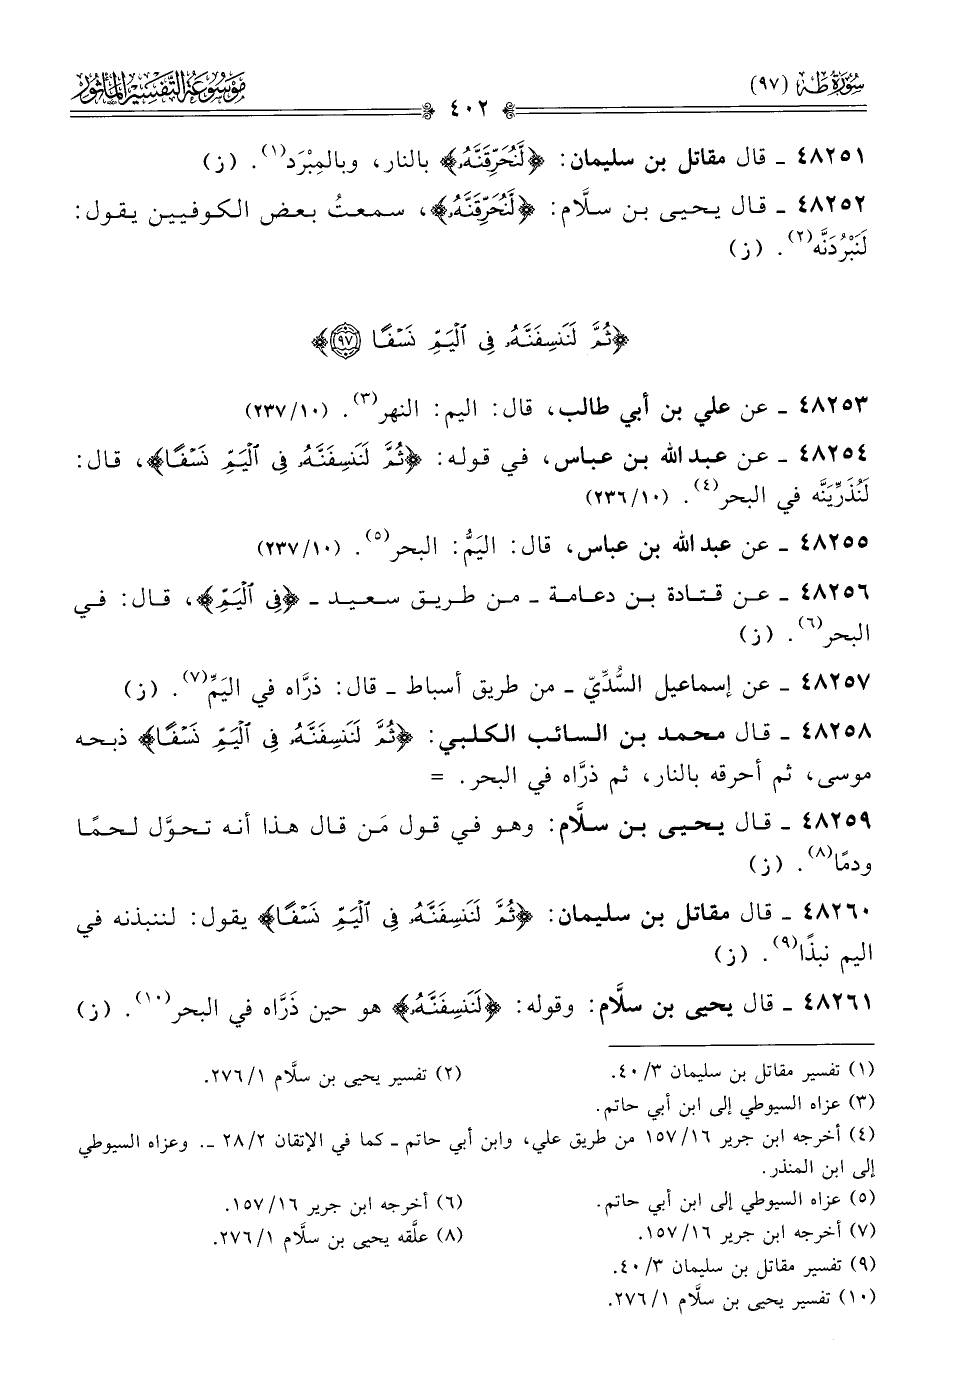 سُورَةُ طٰهٰ (٩٧)
موسوعة التفسير المأثور
٤٠٢
٤٨٢٥١ ـ قال مقاتل بن سليمان: ﴿لَّنُحَرِّقَنَّهُۥ﴾ بالنار، وبالمِبْرَد(١). (ز)
٤٨٢٥٢ ـ قال يحيى بن سلَّام: ﴿لَّنُحَرِّقَنَّهُۥ﴾، سمعتُ بعض الكوفيين يقول:
لَنَبْرُدَنَّه(٢). (ز)
﴿ثُمَّ لَنَنسِفَنَّهُۥ فِى ٱلْيَمِّ نَسْفًا ٩٧﴾
٤٨٢٥٣ ـ عن علي بن أبي طالب، قال: اليم: النهر(٣). (١٠/٢٣٧)
٤٨٢٥٤ ـ عن عبد الله بن عباس، في قوله: ﴿ثُمَّ لَنَنسِفَنَّهُۥ فِى ٱلْيَمِّ نَسْفًا﴾، قال:
لَنُذَرِّيَنَّه في البحر(٤). (١٠/٢٣٦)
٤٨٢٥٥ ـ عن عبد الله بن عباس، قال: اليَمُّ: البحر(٥). (١٠/٢٣٧)
٤٨٢٥٦ ـ عن قتادة بن دعامة ـ من طريق سعيد ـ ﴿فِى ٱلْيَمِّ﴾، قال: في
البحر(٦). (ز)
٤٨٢٥٧ ـ عن إسماعيل السُّدِّيّ ـ من طريق أسباط ـ قال: ذرَّاه في اليَمِّ(٧). (ز)
٤٨٢٥٨ ـ قال محمد بن السائب الكلبي: ﴿ثُمَّ لَنَنسِفَنَّهُۥ فِى ٱلْيَمِّ نَسْفًا﴾ ذبحه
موسى، ثم أحرقه بالنار، ثم ذرَّاه في البحر. =
٤٨٢٥٩ ـ قال يحيى بن سلَّام: وهو في قول مَن قال هذا أنه تحوَّل لحمًا
ودمًا(٨). (ز)
٤٨٢٦٠ ـ قال مقاتل بن سليمان: ﴿ثُمَّ لَنَنسِفَنَّهُۥ فِى ٱلْيَمِّ نَسْفًا﴾ يقول: لننبذنه في
اليم نبذًا(٩). (ز)
٤٨٢٦١ ـ قال يحيى بن سلَّام: وقوله: ﴿لَنَنسِفَنَّهُۥ﴾ هو حين ذَرَّاه في البحر(١٠). (ز)
(١) تفسير مقاتل بن سليمان ٣/٤٠. (٢) تفسير يحيى بن سلَّام ١/٢٧٦.
(٣) عزاه السيوطي إلى ابن أبي حاتم.
(٤) أخرجه ابن جرير ١٦/١٥٧ من طريق علي، وابن أبي حاتم ـ كما في الإتقان ٢/٢٨ ـ. وعزاه السيوطي
إلى ابن المنذر.
(٥) عزاه السيوطي إلى ابن أبي حاتم. (٦) أخرجه ابن جرير ١٦/١٥٧.
(٧) أخرجه ابن جرير ١٦/١٥٧. (٨) علَّقه يحيى بن سلَّام ١/٢٧٦.
(٩) تفسير مقاتل بن سليمان ٣/٤٠.
(١٠) تفسير يحيى بن سلَّام ١/٢٧٦.